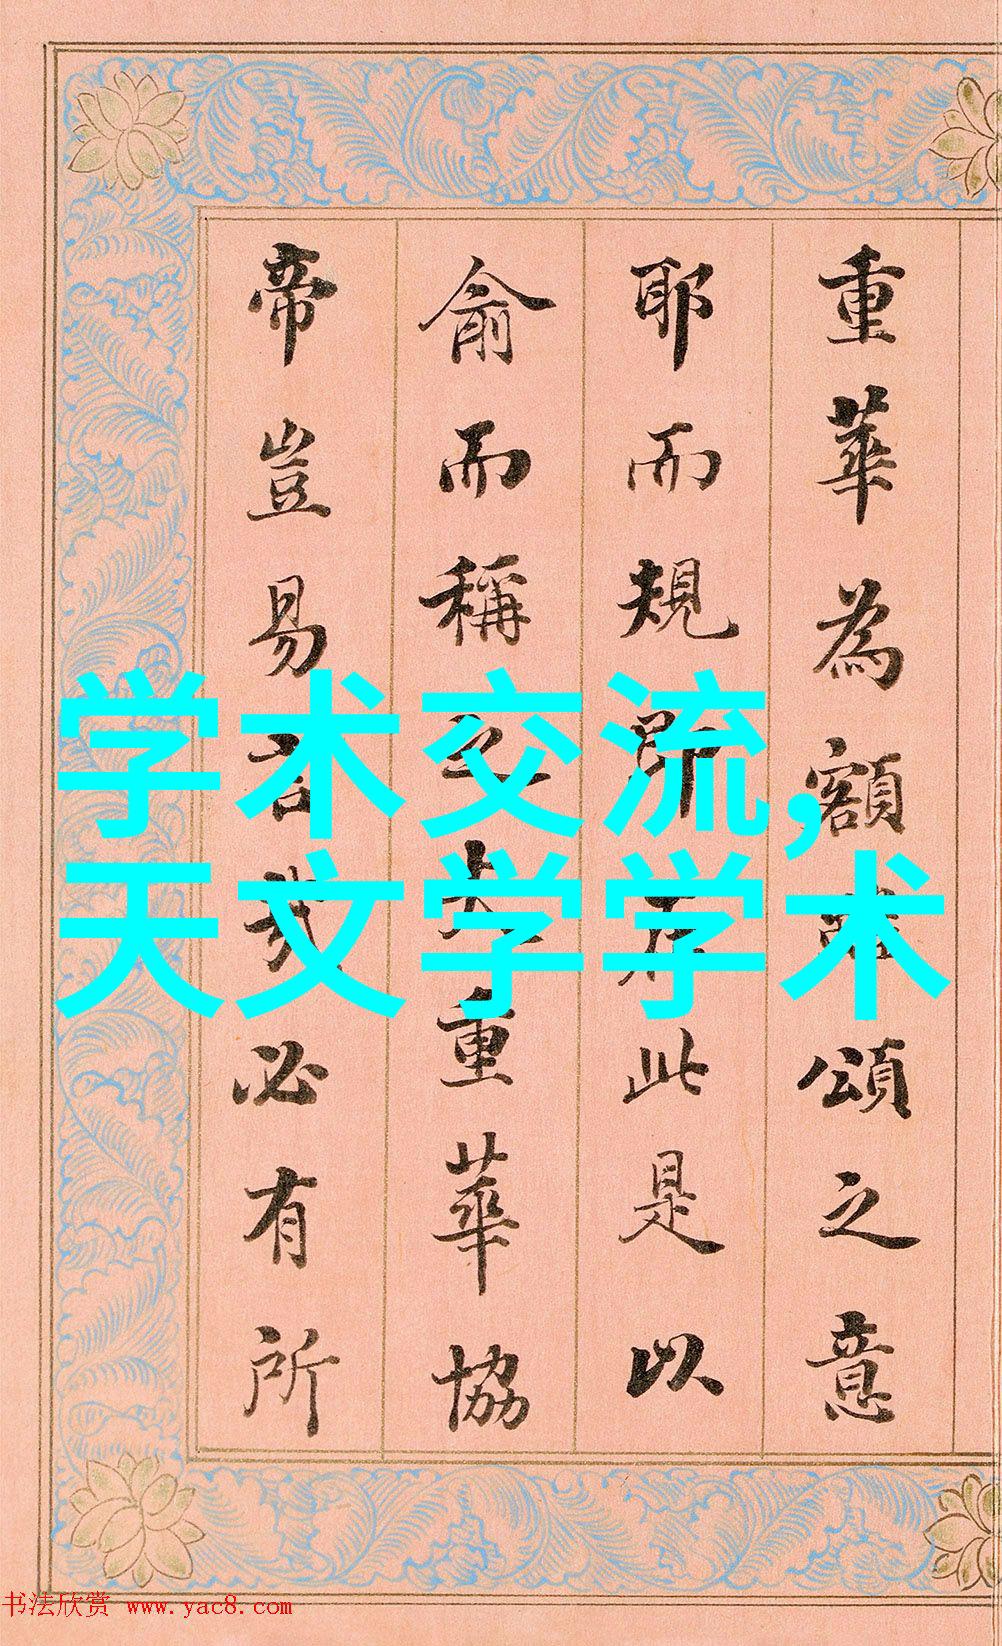 重華為額頌之意
耶而規此是以
俞而稱之大重華協
帝豈易言哉必有所
学术交流,
天文学学术
书法欣赏 www.yac8.com